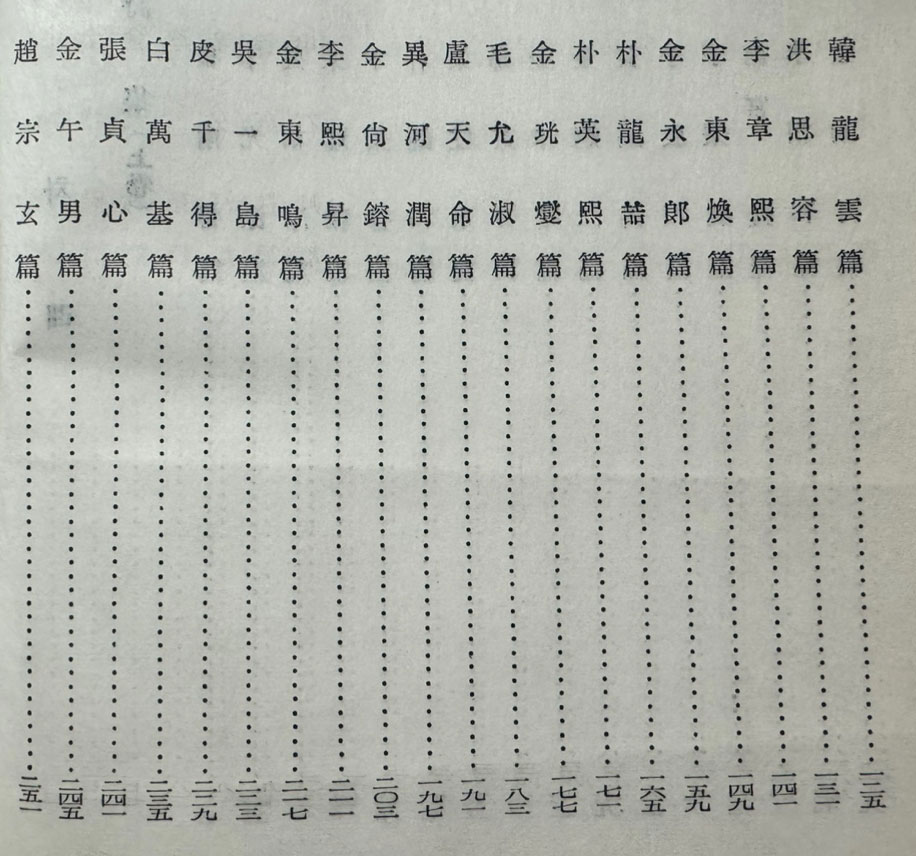 韓龍雲篇……一二五
洪思容篇……一三一
李章熙篇……一四一
金東煥篇……一四九
金永郎篇……一五九
朴龍喆篇……一六五
朴英熙篇……一七一
金珖燮篇……一七七
毛允淑篇……一八三
盧天命篇……一九一
異河潤篇……一九七
金尙鎔篇……二〇三
李熙昇篇……二一一
金東鳴篇……二一七
吳一島篇……二二三
皮千得篇……二二九
白萬基篇……二三五
張貞心篇……二四一
金午男篇……二四五
趙宗玄篇……二五一